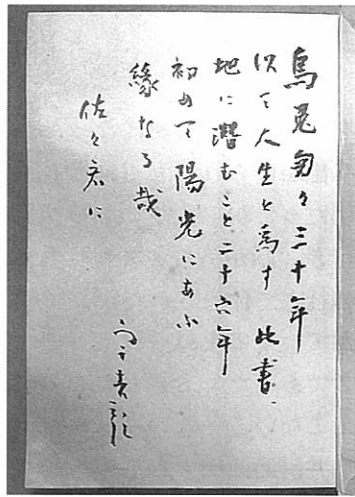 烏兎匆々三十年
以て人生と為す 此書、
地に潜むこと二十六年
初めて陽光にあふ
縁なる哉
佐々君に